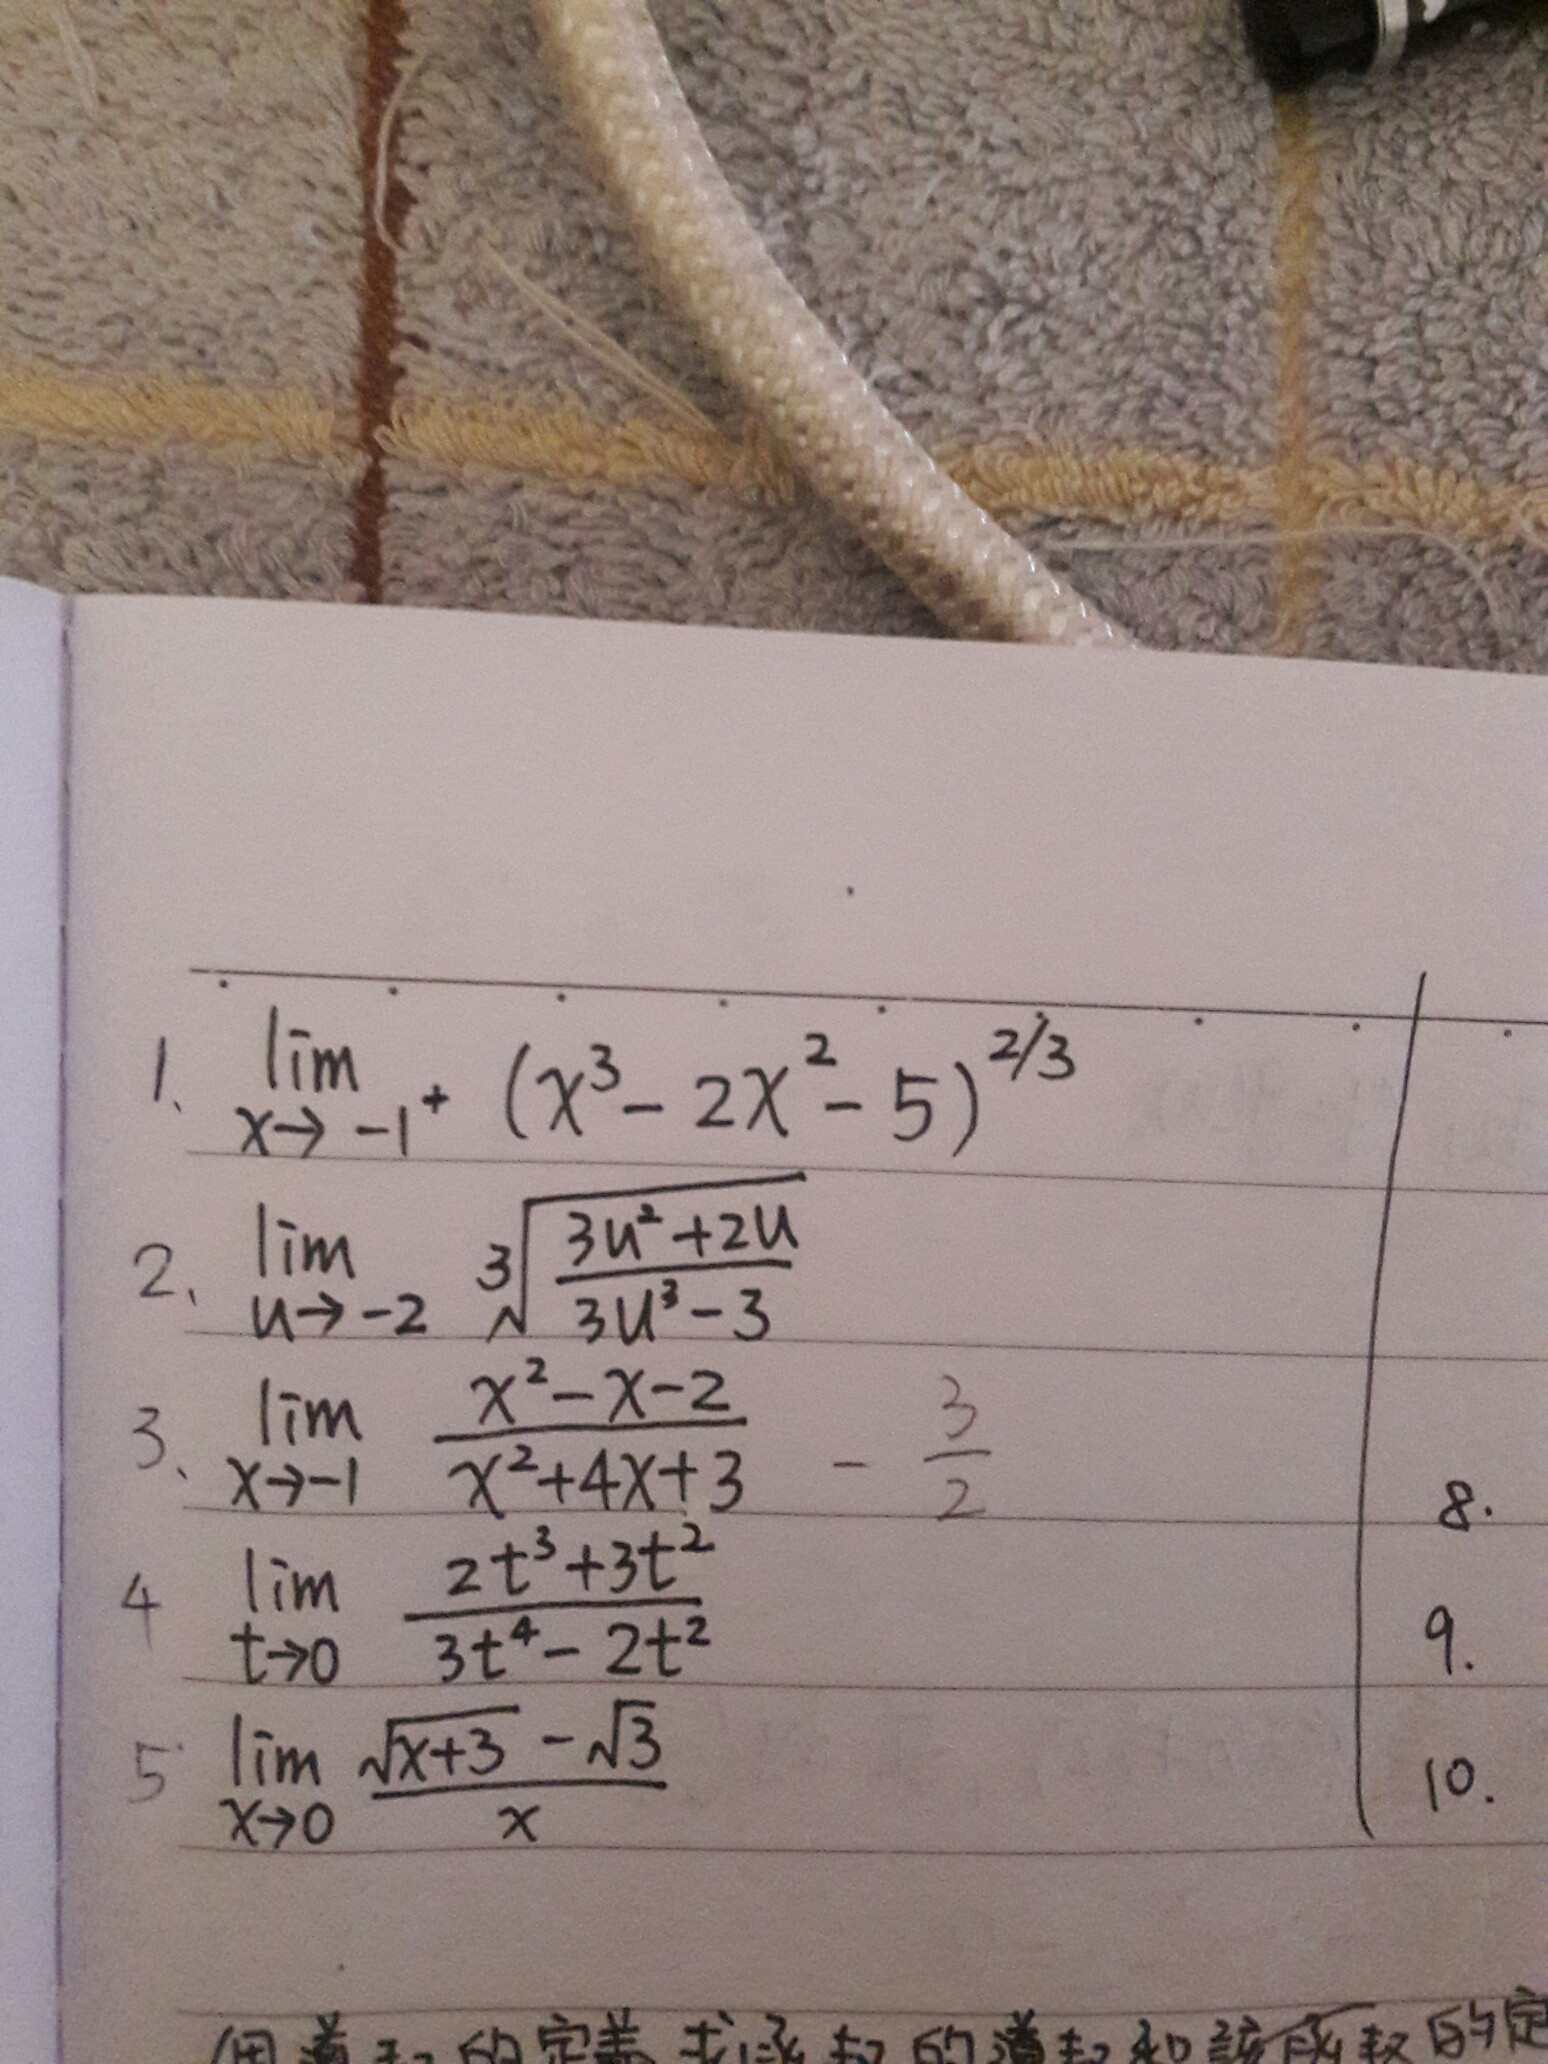 1. lim x→-1⁺ (x³ - 2x² - 5)^2/3
2. lim u→-2 ³√((3u²+2u)/(3u³-3))
3. lim x→-1 (x²-x-2)/(x²+4x+3) - 3/2
4 lim t→0 (2t³+3t²)/(3t⁴-2t²)
5 lim x→0 (√(x+3) - √3)/x
8.
9.
10.
用導數的定義求函數的導數和該函數的定